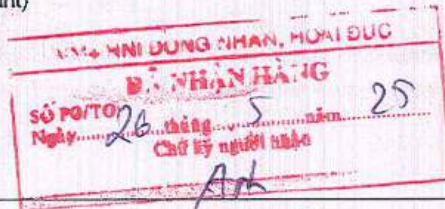 HNI DUONG NHAN, HOAI DUC
ĐÃ NHẬN HÀNG
SỐ PO/TO
Ngày 26 tháng 5 năm 25
Chữ ký người nhận